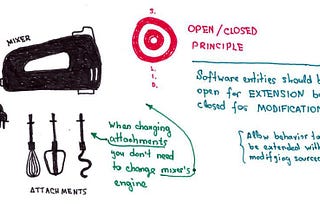 MIXER
S.
O
L.
I.
D.
OPEN/CLOSED
PRINCIPLE
Software entities should b
open for EXTENSION bu
closed for MODIFICATION
Allow behavior to
be extended with
modifying source
When changing
attachments
you don't need
to change mixer's
engine
ATTACHMENTS